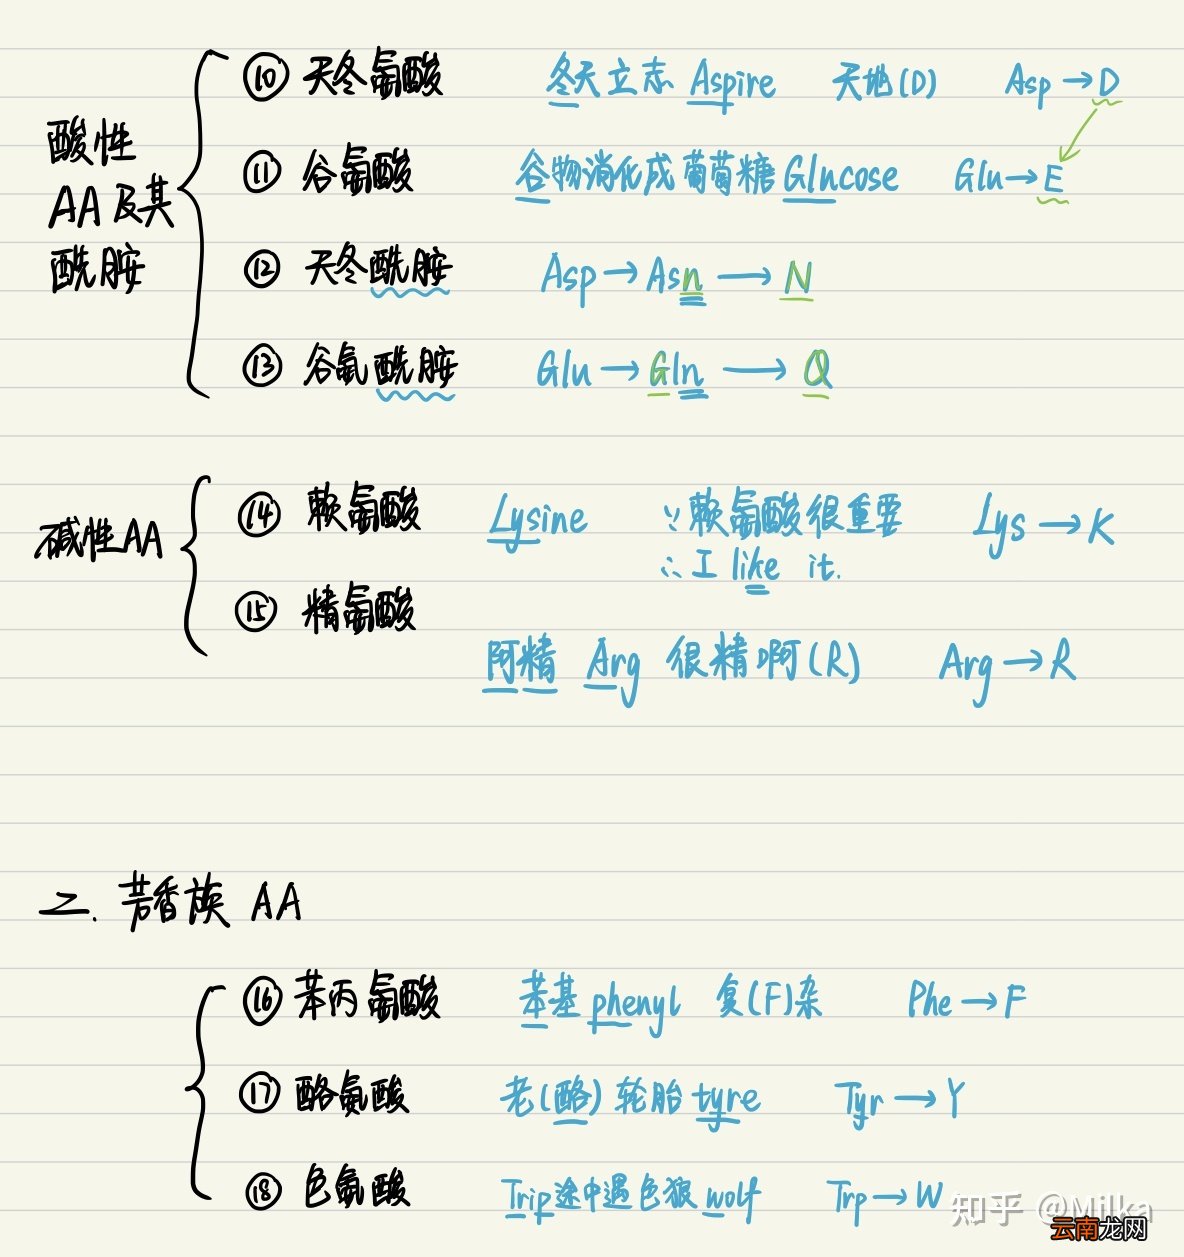 ⑩ 天冬氨酸 冬天立志 Aspire 天地(D) Asp → D
酸性
AA及其
酰胺
⑪ 谷氨酸 谷物消化成葡萄糖 Glucose Glu → E
⑫ 天冬酰胺 Asp → Asn → N
⑬ 谷氨酰胺 Glu → Gln → Q
碱性AA
⑭ 赖氨酸 Lysine ∵赖氨酸很重要 Lys → K
∴ I like it.
⑮ 精氨酸
阿精 Arg 很精啊(R) Arg → R
二. 芳香族 AA
⑯ 苯丙氨酸 苯基 phenyl 复(F)杂 Phe → F
⑰ 酪氨酸 老(酪)轮胎 tyre Tyr → Y
⑱ 色氨酸 Trip途中遇色狼 wolf Trp → W
知乎 @Milka
云南龙网